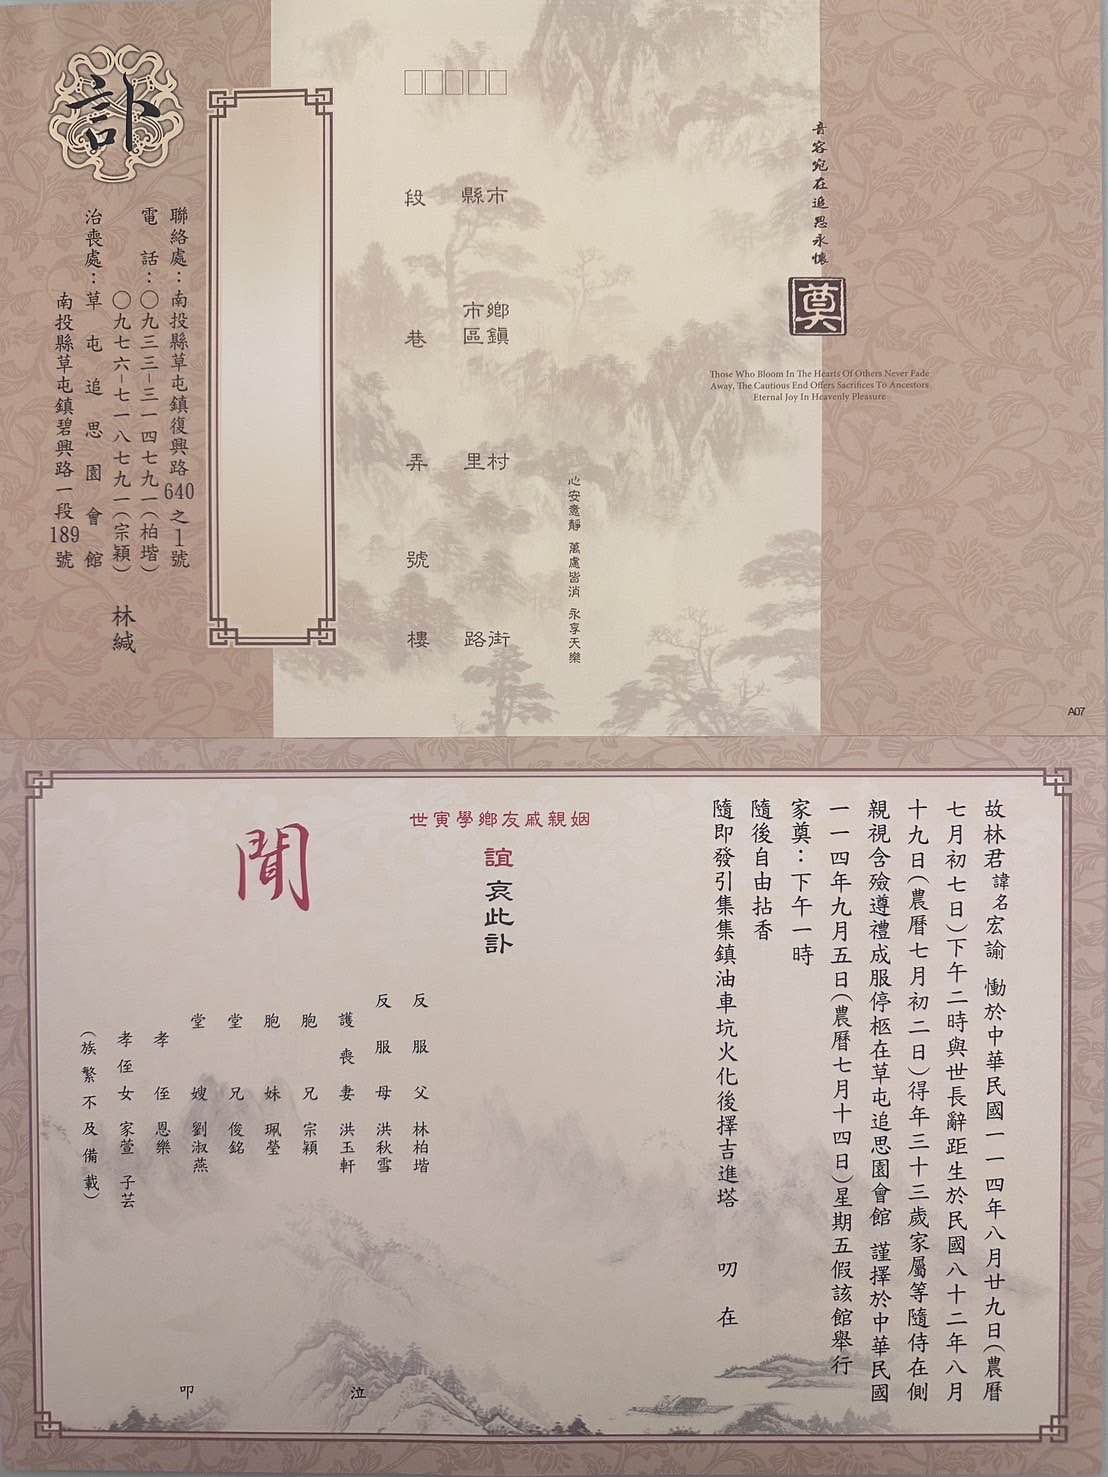 訃
聯絡處：南投縣草屯鎮復興路640之1號
電話：〇九三三－三一四七九一（柏堦）
〇九七六－七一八七九一（宗穎）
治喪處：草屯追思園會館
南投縣草屯鎮碧興路一段189號
林緘
縣市
鄉鎮
市區
村里
路街
段
巷
弄
號
樓
音容宛在追思永懷
奠
Those Who Bloom In The Hearts Of Others Never Fade
Away, The Cautious End Offers Sacrifices To Ancestors
Eternal Joy In Heavenly Pleasure
心安意靜 萬慮皆消 永享天樂
A07
故林君諱名宏諭 慟於中華民國一一四年八月廿九日（農曆
七月初七日）下午二時與世長辭距生於民國八十二年八月
十九日（農曆七月初二日）得年三十三歲家屬等隨侍在側
親視含殮遵禮成服停柩在草屯追思園會館 謹擇於中華民國
一一四年九月五日（農曆七月十四日）星期五假該館舉行
家奠：下午一時
隨後自由拈香
隨即發引集集鎮油車坑火化後擇吉進塔 叨 在
世寅學鄉友戚親姻
誼 哀此訃
聞
反服父 林柏堦
反服母 洪秋雪
護喪妻 洪玉軒
胞兄 宗穎
胞妹 珮瑩
堂兄 俊銘
堂嫂 劉淑燕
孝侄 恩樂
孝侄女 家萱 子芸
（族繁不及備載）
泣
叩